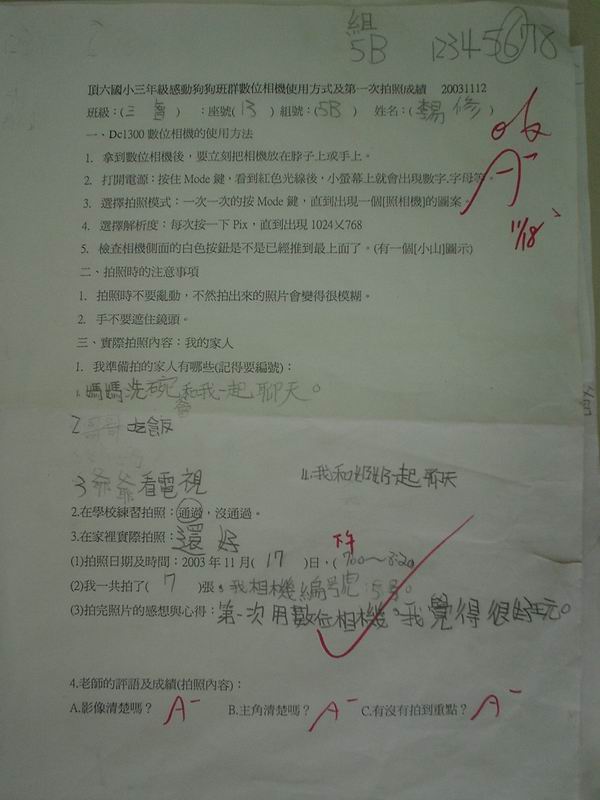 組
5B 12345678
頂六國小三年級感動狗狗班群數位相機使用方式及第一次拍照成績 20031112
班級：(三 ) ：座號(13) 組號：(5B) 姓名：(楊 修)
ok
A-
11/18
一、Dc1300 數位相機的使用方法
1. 拿到數位相機後，要立刻把相機放在脖子上或手上。
2. 打開電源：按住 Mode 鍵，看到紅色光線後，小螢幕上就會出現數字.字母等。
3. 選擇拍照模式：一次一次的按 Mode 鍵，直到出現一個[照相機]的圖案。
4. 選擇解析度：每次按一下 Pix，直到出現 1024X768
5. 檢查相機側面的白色按鈕是不是已經推到最上面了。(有一個[小山]圖示)
二、拍照時的注意事項
1. 拍照時不要亂動，不然拍出來的照片會變得很模糊。
2. 手不要遮住鏡頭。
三、實際拍照內容：我的家人
1. 我準備拍的家人有哪些(記得要編號)：
1. 媽媽洗碗和我一起聊天。
2 哥哥吃飯
3 爺爺看電視 4.我和奶奶一起聊天
2.在學校練習拍照：通過，沒通過。
3.在家裡實際拍照：還好
(1)拍照日期及時間：2003 年 11 月( 17 )日，(下午 7:00～8:20
(2)我一共拍了( 7 )張。我相機編號 5号。
(3)拍完照片的感想與心得：第一次用數位相機。我覺得很好玩。
4.老師的評語及成績(拍照內容)：
A.影像清楚嗎？ A- B.主角清楚嗎？ A- C.有沒有拍到重點？ A-